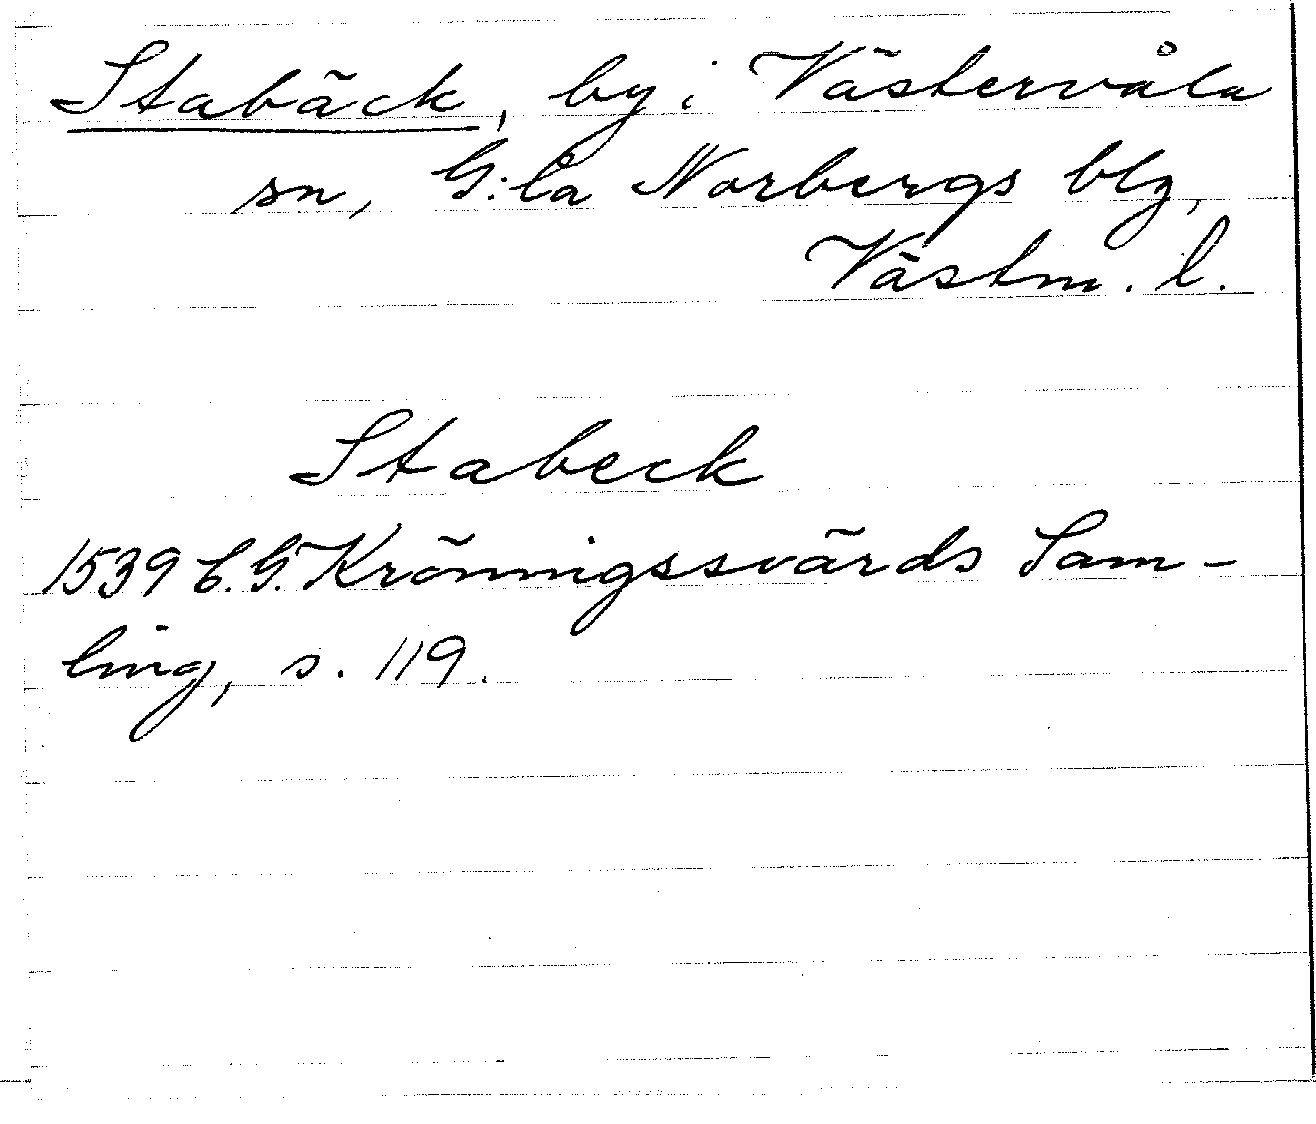 Stabäck, by i Västervåla
sn, G:la Norbergs blg,
Västm. l.
Stabeck
1539 C.G. Krönnigssvärds Sam-
ling, s. 119.